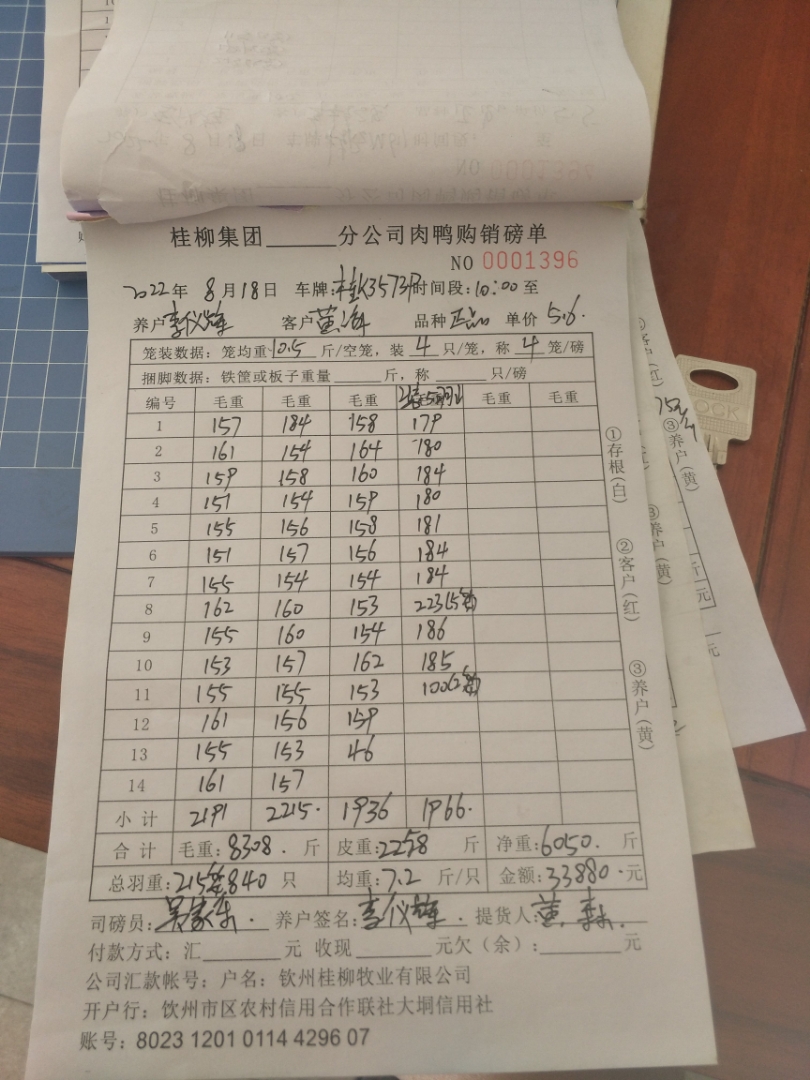 NO 0001397
桂柳集团______分公司肉鸭购销磅单
NO 0001396
2022年 8月18日 车牌:桂K3573P时间段:10:00至
养户李仪辉 客户黄海 品种正品 单价5.6.
笼装数据:笼均重10.5斤/空笼,装4只/笼,称4笼/磅
捆脚数据:铁筐或板子重量______斤,称______只/磅
编号 毛重 毛重 毛重 毛重 毛重
1 157 184 158 179
2 161 154 164 180
3 159 158 160 184
4 151 154 159 180
5 155 156 158 181
6 151 157 156 184
7 155 154 154 184
8 162 160 153 223(5笼)
9 155 160 154 186
10 153 157 162 185
11 155 155 153 100(2笼)
12 161 156 159
13 155 153 46
14 161 157
小计 2191 2215. 1936 1966.
合计 毛重:8308.斤 皮重:2258斤 净重:6050.斤
总羽重:215笼840只 均重:7.2斤/只 金额:33880.元
司磅员:吴家东. 养户签名:李仪辉. 提货人:黄
付款方式:汇______元 收现______元欠(余):______元
公司汇款帐号:户名:钦州桂柳牧业有限公司
开户行:钦州市区农村信用合作联社大垌信用社
账号:8023 1201 0114 4296 07
①存根(白)
②客户(红)
③养户(黄)
③养户(黄)
③养户(黄)
斤
元
元